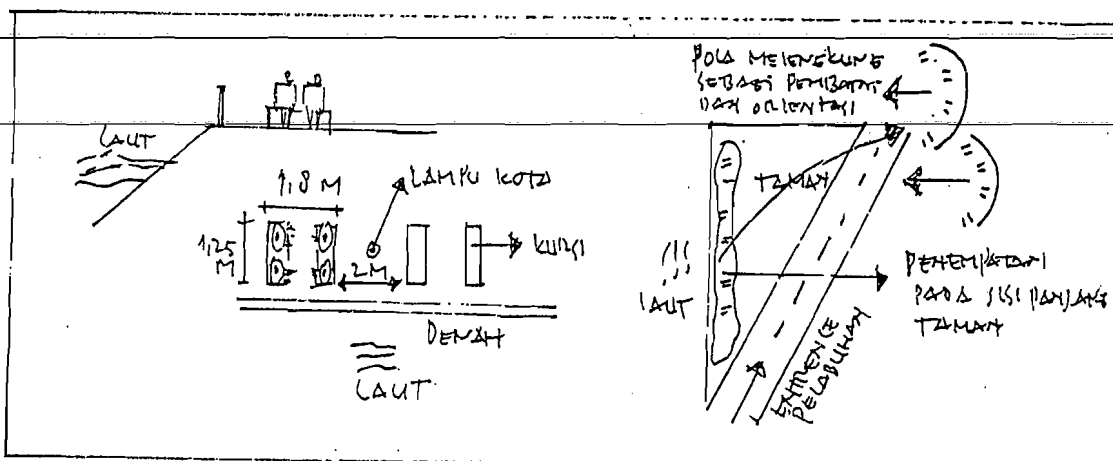 LAUT
1,8 M
LAMPU KOTA
1,25
M
2M
KURSI
DENAH
LAUT
POLA MELENGKUNG
SEBAGI PEMBATAS
DAN ORIENTASI
TAMAN
LAUT
PENEMPATAN
PADA SISI PANJANG
TAMAN
ENTRENCE
PELABUHAN